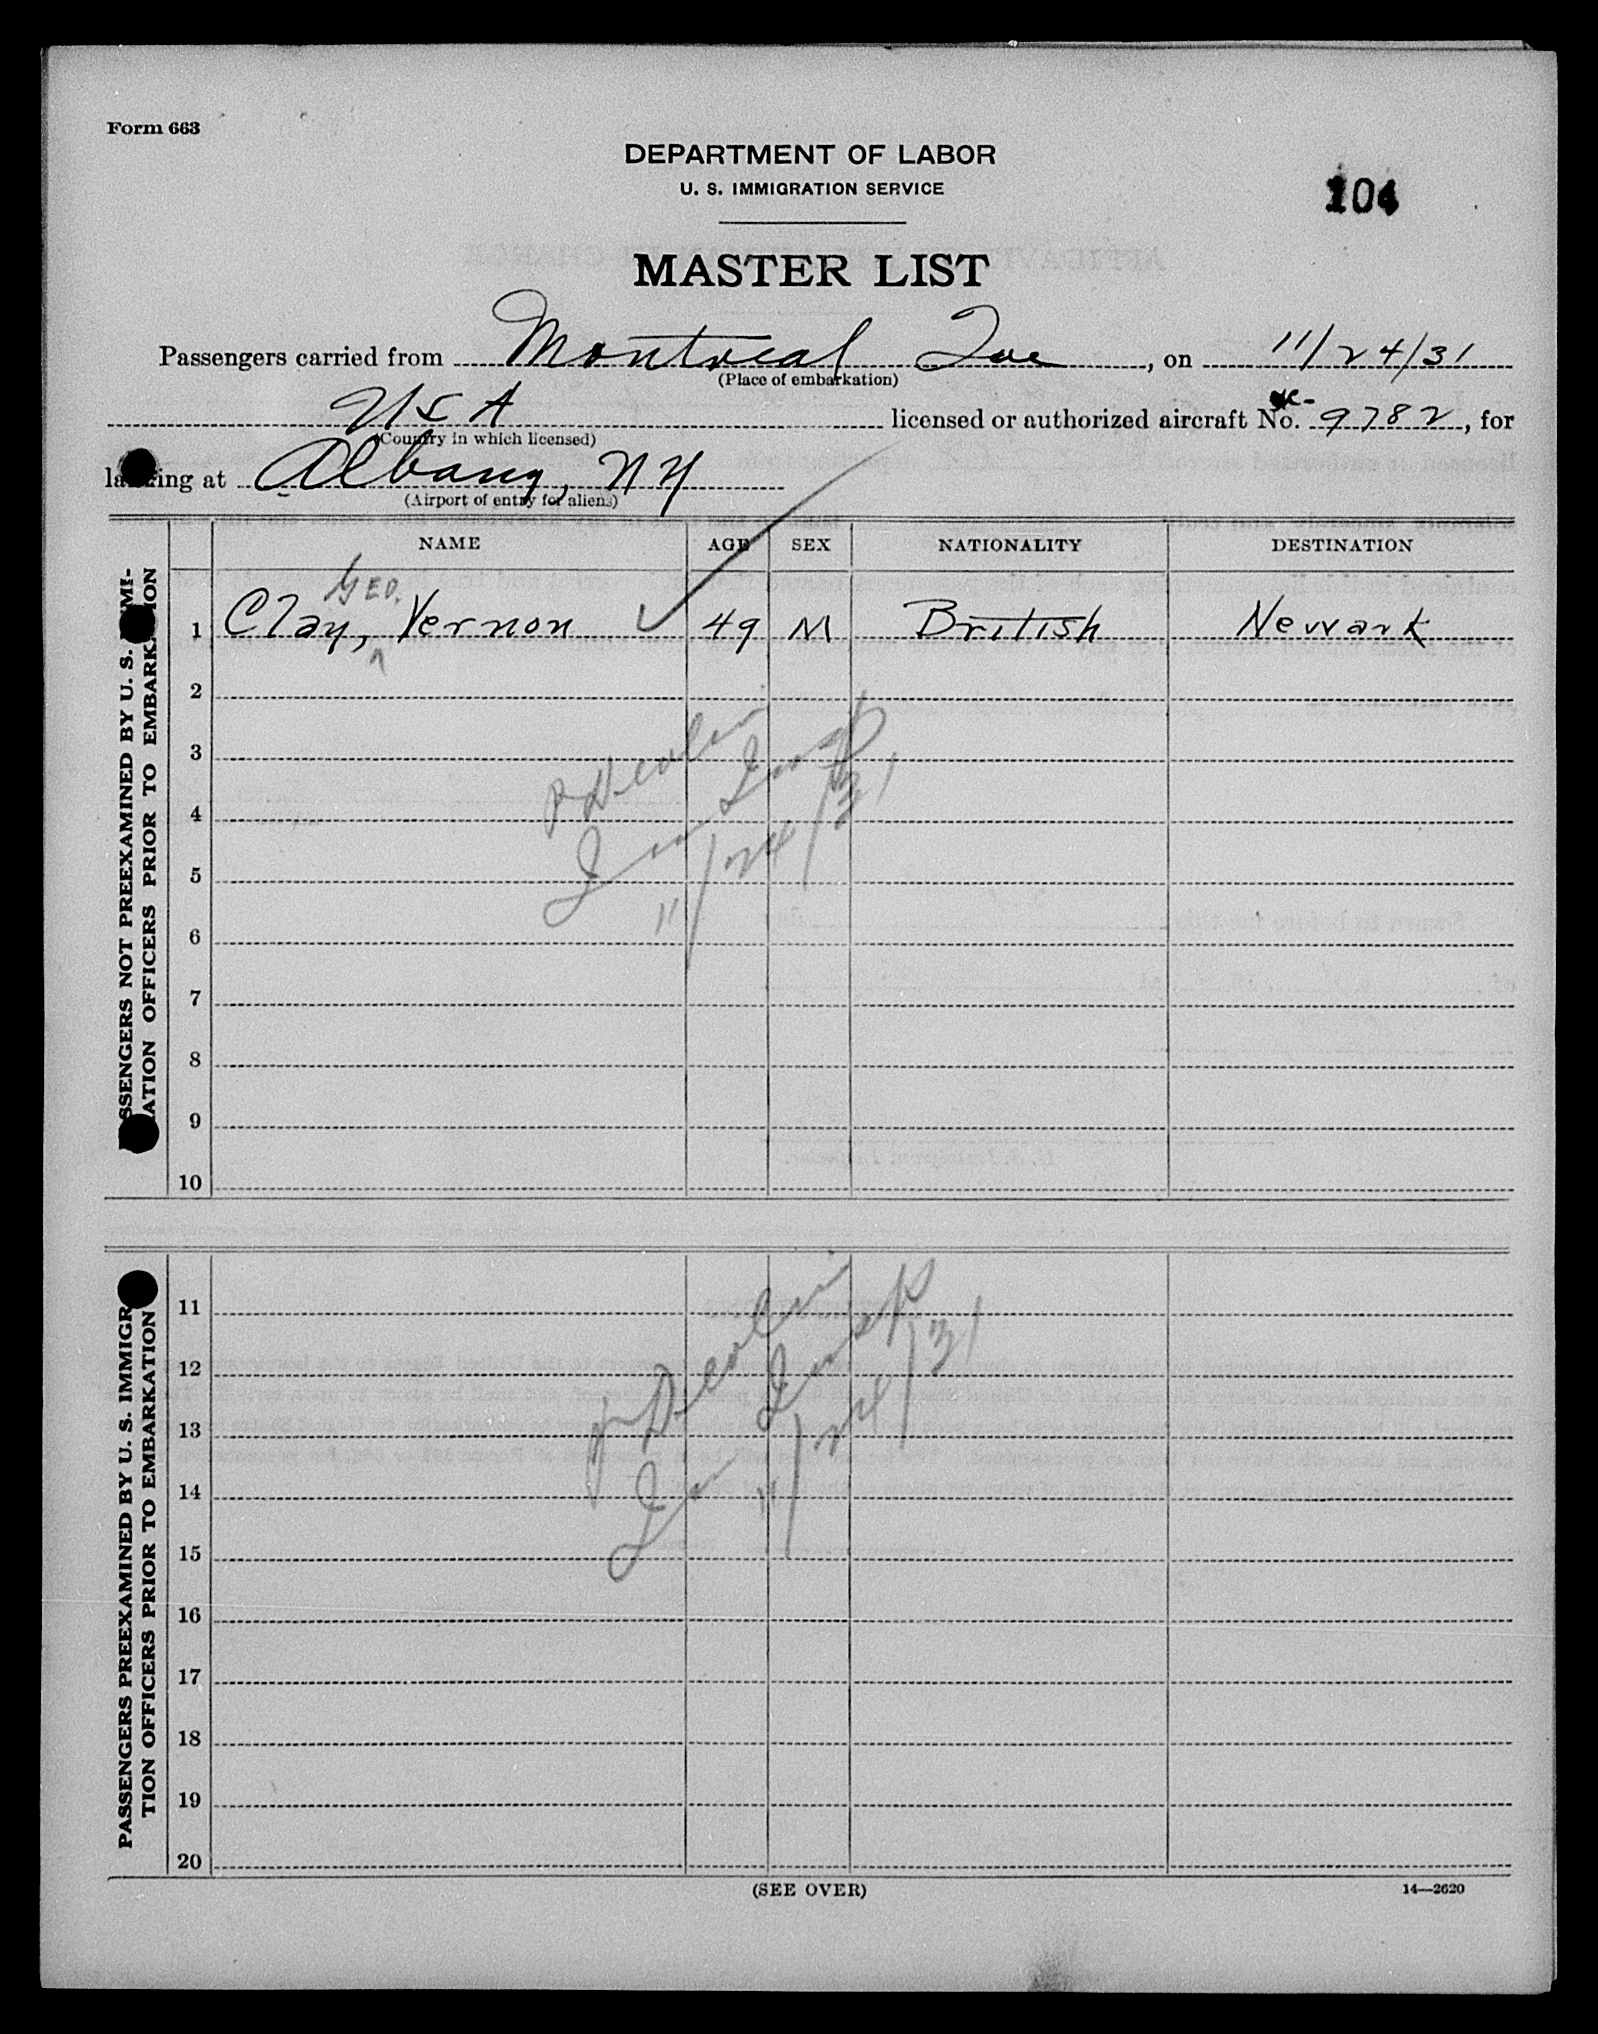 Form 663
DEPARTMENT OF LABOR
U. S. IMMIGRATION SERVICE
104
MASTER LIST
Passengers carried from Montreal Que, on 11/24/31
(Place of embarkation)
USA licensed or authorized aircraft No. 9782, for
(Country in which licensed)
landing at Albany, NY
(Airport of entry for aliens)
NAME AGE SEX NATIONALITY DESTINATION
GEO.
1 Clay, Vernon 49 M British Newark
2
3
4
5
6
7
8
9
10
Devlin
Imm Insp
11/24/31
PASSENGERS NOT PREEXAMINED BY U. S. IMMI-
GRATION OFFICERS PRIOR TO EMBARKATION
11
12
13
14
15
16
17
18
19
20
Devlin
Imm Insp
11/24/31
PASSENGERS PREEXAMINED BY U. S. IMMIGRA-
TION OFFICERS PRIOR TO EMBARKATION
(SEE OVER)
14—2620